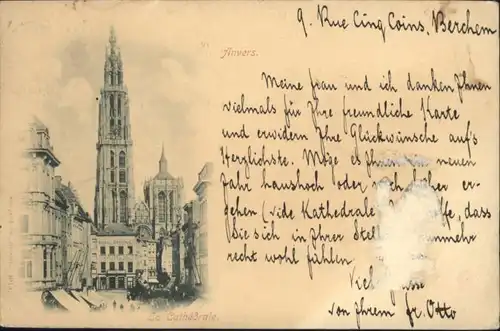 9, Rue Cinq Coins, Berchem
Anvers.
Meine Frau und ich danken Ihnen
vielmals für Ihre freundliche Karte
und erwidern Ihre Glückwünsche auf's
Herzlichste. Möge es Ihnen im neuen
Jahr haushoch oder noch höher er-
gehen (vide Kathedrale dass
Sie sich in Ihrer nunmehr
recht wohl fühlen
Viel
von Ihrem fr. Otto
La Cathédrale.